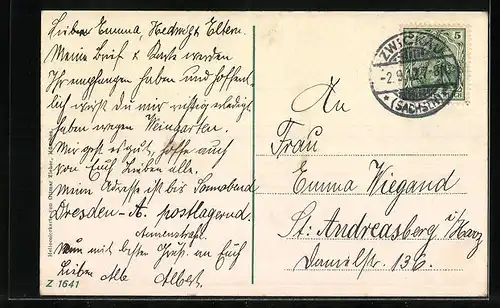 Liebe Emma, Hedwig & Eltern.
Meine Brief & Karte werden
Ihr empfangen haben und hoffent-
lich wirst Du mir richtig erledigt
haben wegen Weingarten.
Mir geht es gut, hoffe auch
von Euch Lieben alle.
Meine Adresse ist bis Sonnabend
Dresden-A. postlagernd.
Annenstraße.
Nun mit besten Grüß. an Euch
Lieben Alle Albert.
Z 1641
ZWICKAU
-2.9.12. 7-8N.
* (SACHSEN)
5
An
Frau
Emma Wiegand
St. Andreasberg i/Harz
Danielstr. 136.